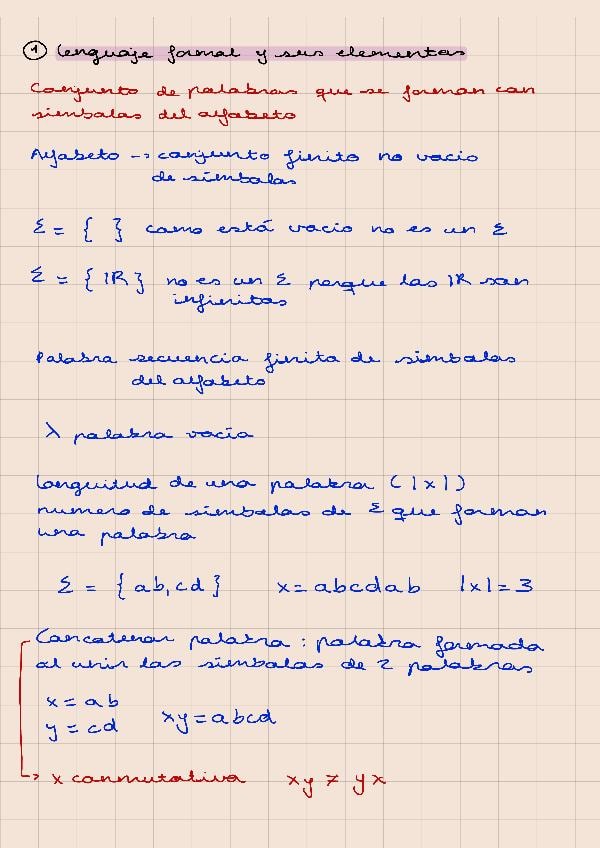 ① Lenguaje formal y sus elementos
Conjunto de palabras que se forman con
simbolos del alfabeto
Alfabeto -> conjunto finito no vacio
de simbolos
Σ = { } como está vacio no es un Σ
Σ = { ℝ } no es un Σ porque los ℝ son
infinitos
Palabra secuencia finita de simbolos
del alfabeto
λ palabra vacía
Longuitud de una palabra (|x|)
numero de simbolos de Σ que forman
una palabra
Σ = { ab, cd } x = abcdab |x| = 3
Concatenar palabra : palabra formada
al unir los simbolos de 2 palabras
x = ab
y = cd xy = abcd
-> x conmutativa xy ≠ yx